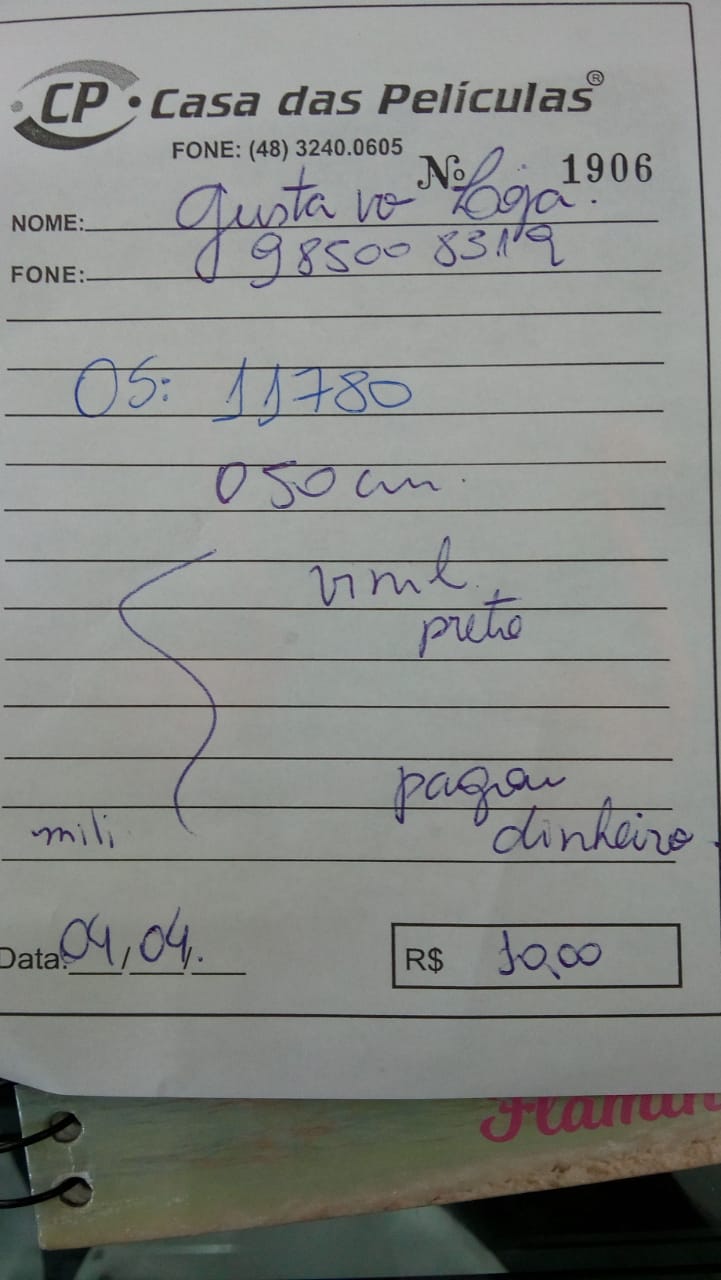 CP Casa das Películas®
FONE: (48) 3240.0605
Nº 1906
NOME: Gustavo Loja.
FONE: 98500 8319
OS: 11780
050 cm.
vinil
preto
pagou
mili dinheiro.
Data: 04/04/.
R$ 10,00
Flamin